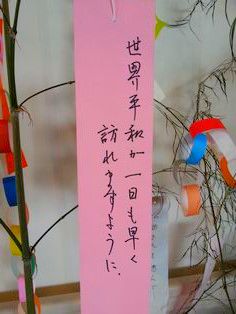 世界平和が一日も早く
訪れますように。